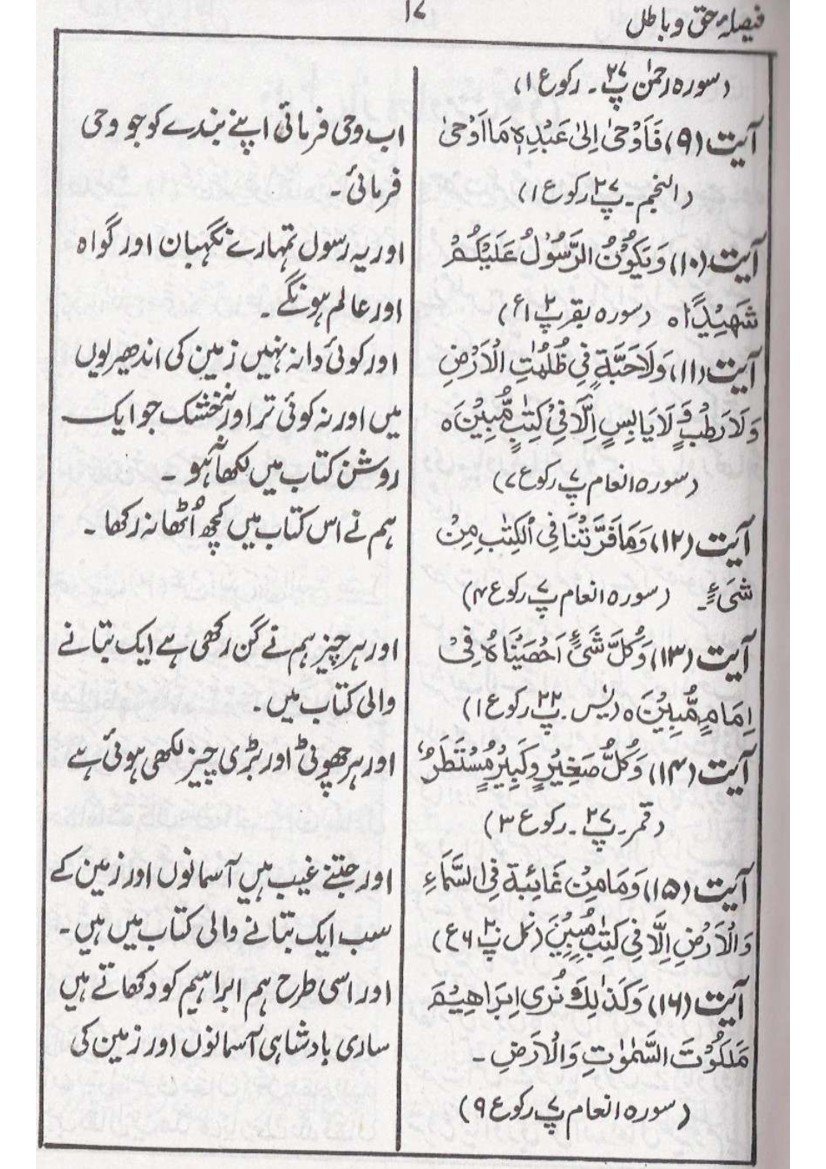 فیصلۂ حق و باطل
۱۷
(سورہ رحمٰن پ۲۷۔ رکوع ۱)
آیت (۹) فَاَوْحٰی اِلیٰ عَبْدِہٖ مَا اَوْحٰی
(النجم۔ پ۲۷ رکوع ۱)
آیت (۱۰) وَیَکُوْنُ الرَّسُوْلُ عَلَیْکُمْ
شَھِیْدًا ہ (سورہ بقر پ۲ ۱ع)
آیت (۱۱) وَلَا حَبَّةٍ فِیْ ظُلُمٰتِ الْاَرْضِ
وَلَا رَطْبٍ وَّلَا یَابِسٍ اِلَّا فِیْ کِتٰبٍ مُّبِیْنٍ ہ
(سورہ انعام پ۷ رکوع ۷)
آیت (۱۲) وَمَا فَرَّتْنَا فِی الْکِتٰبِ مِنْ
شَیْءٍ۔ (سورہ انعام پ۷ رکوع ۴)
آیت (۱۳) وَکُلَّ شَیْءٍ اَحْصَیْنَاہُ فِیْ
اِمَامٍ مُّبِیْنٍ ہ (یٰس۔ پ۲۲ رکوع ۱)
آیت (۱۴) وَکُلُّ صَغِیْرٍ وَّکَبِیْرٍ مُّسْتَطَرٌ
(قمر۔ پ۲۷۔ رکوع ۳)
آیت (۱۵) وَمَا مِنْ غَائِبَة فِی السَّمَاءِ
وَالْاَرْضِ اِلَّا فِیْ کِتٰبٍ مُّبِیْنٍ (نمل پ۲۰ ۶ع)
آیت (۱۶) وَکَذٰلِکَ نُرِی اِبْرَاھِیْمَ
مَلَکُوْتَ السَّمٰوٰتِ وَالْاَرْضِ۔
(سورہ انعام پ۷ رکوع ۹)
اب وحی فرمائی اپنے بندے کو جو وحی
فرمائی۔
اور یہ رسول تمہارے نگہبان اور گواہ
اور عالم ہونگے
اور کوئی دانہ نہیں زمین کی اندھیریوں
میں اور نہ کوئی تر اور نہ خشک جو ایک
روشن کتاب میں لکھا نہ ہو۔
ہم نے اس کتاب میں کچھ اُٹھا نہ رکھا۔
اور ہر چیز ہم نے گن رکھی ہے ایک بتانے
والی کتاب میں۔
اور ہر چھوٹی اور بڑی چیز لکھی ہوئی ہے
اور جتنے غیب ہیں آسمانوں اور زمین کے
سب ایک بتانے والی کتاب میں ہیں۔
اور اسی طرح ہم ابراہیم کو دکھاتے ہیں
ساری بادشاہی آسمانوں اور زمین کی